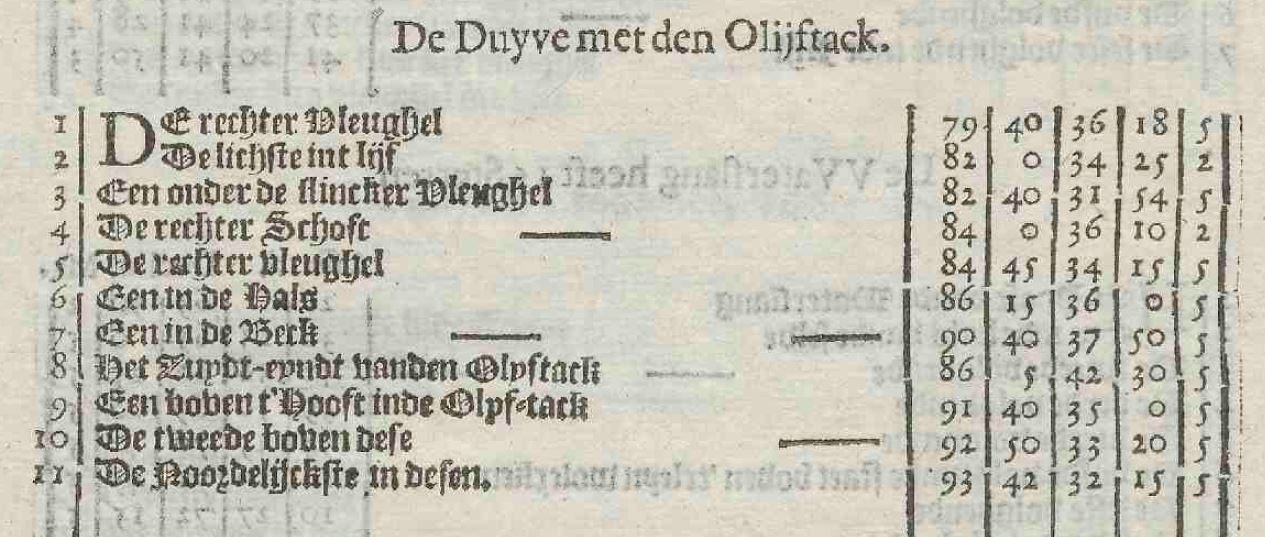 De Duyve met den Olijftack.
1 DE rechter Vleughel 79 40 36 18 5
2 De lichste int lijf 82 0 34 25 2
3 Een onder de slincker Vleughel 82 40 31 54 5
4 De rechter Schoft 84 0 36 10 2
5 De rechter vleughel 84 45 34 15 5
6 Een in de Hals 86 15 36 0 5
7 Een in de Beck 90 40 37 50 5
8 Het Zuydt-eyndt vanden Olyftack 86 5 42 30 5
9 Een boven t'Hooft inde Olyf-tack 91 40 35 0 5
10 De tweede boven dese 92 50 33 20 5
11 De Noordelijckste in desen. 93 42 32 15 5